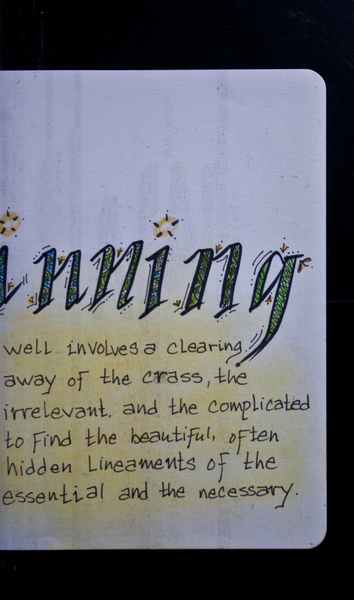 inning
well involves a clearing
away of the crass, the
irrelevant, and the complicated
to find the beautiful, often
hidden lineaments of the
essential and the necessary.